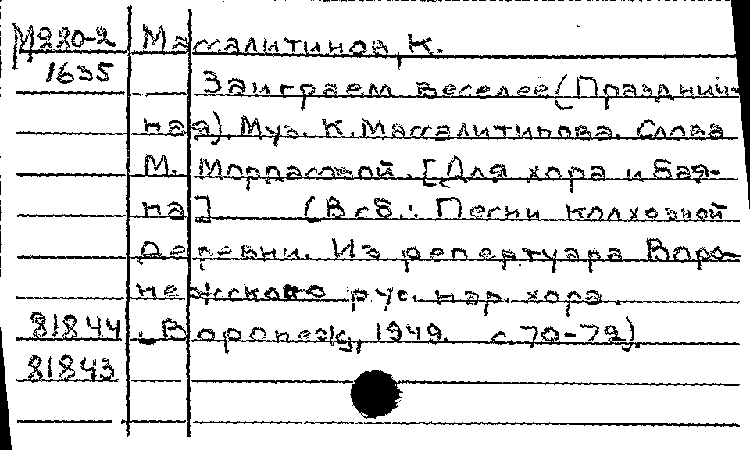 М220-2 Массалитинов, К.
1635 Заиграем веселее (Празднич-
ная). Муз. К. Массалитинова. Слова
М. Мордасовой. [Для хора и бая-
на] (В сб.: Песни колхозной
деревни. Из репертуара Воро-
нежского рус. нар. хора.
81844 . Воронеж, 1949. с. 70-72).
81843